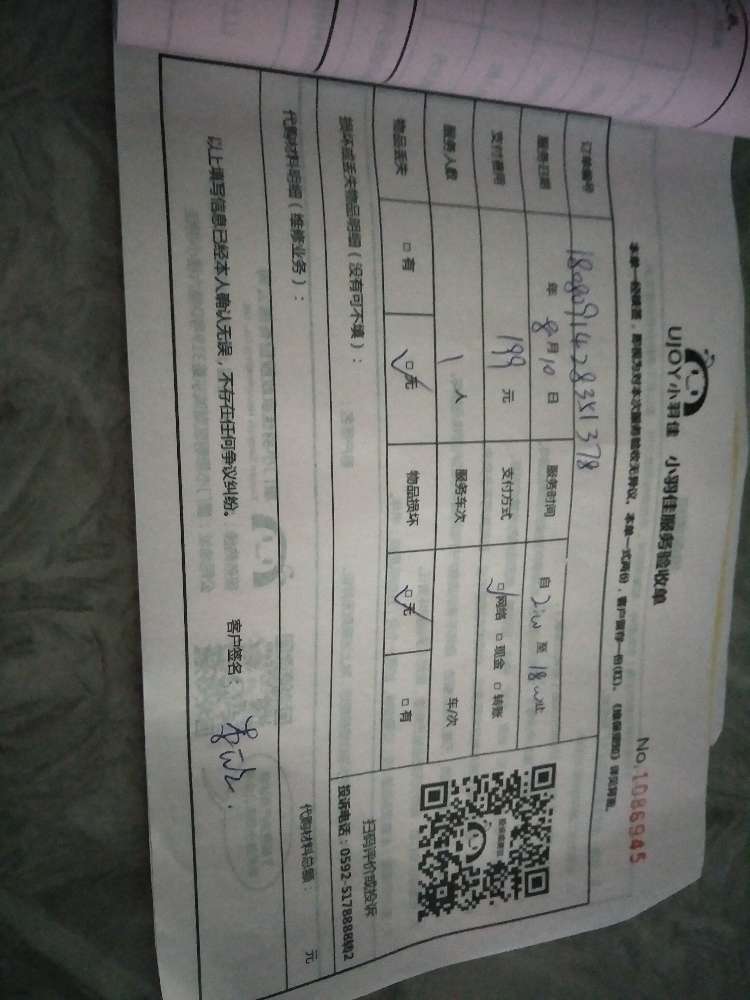 UJOY小羽佳 小羽佳服务验收单 No.1086945
本单一经签署，即视为对本次服务验收无异议。本单一式两份，客户留存一份(红)。
订单编号 1808091428351378
服务日期 年 8月10日 服务时间 自 至 18 止
支付费用 199 元 支付方式 □网络 □现金 □转账
服务人数 1 人 服务车次 车/次
物品丢失 □有 □无 物品损坏 □无 □有
损坏或丢失物品明细（没有可不填）：
扫码评价或投诉
投诉电话：0592-5178888转2
代购材料明细（维修业务）： 代购材料总额： 元
以上填写信息已经本人确认无误，不存在任何争议纠纷。 客户签名：